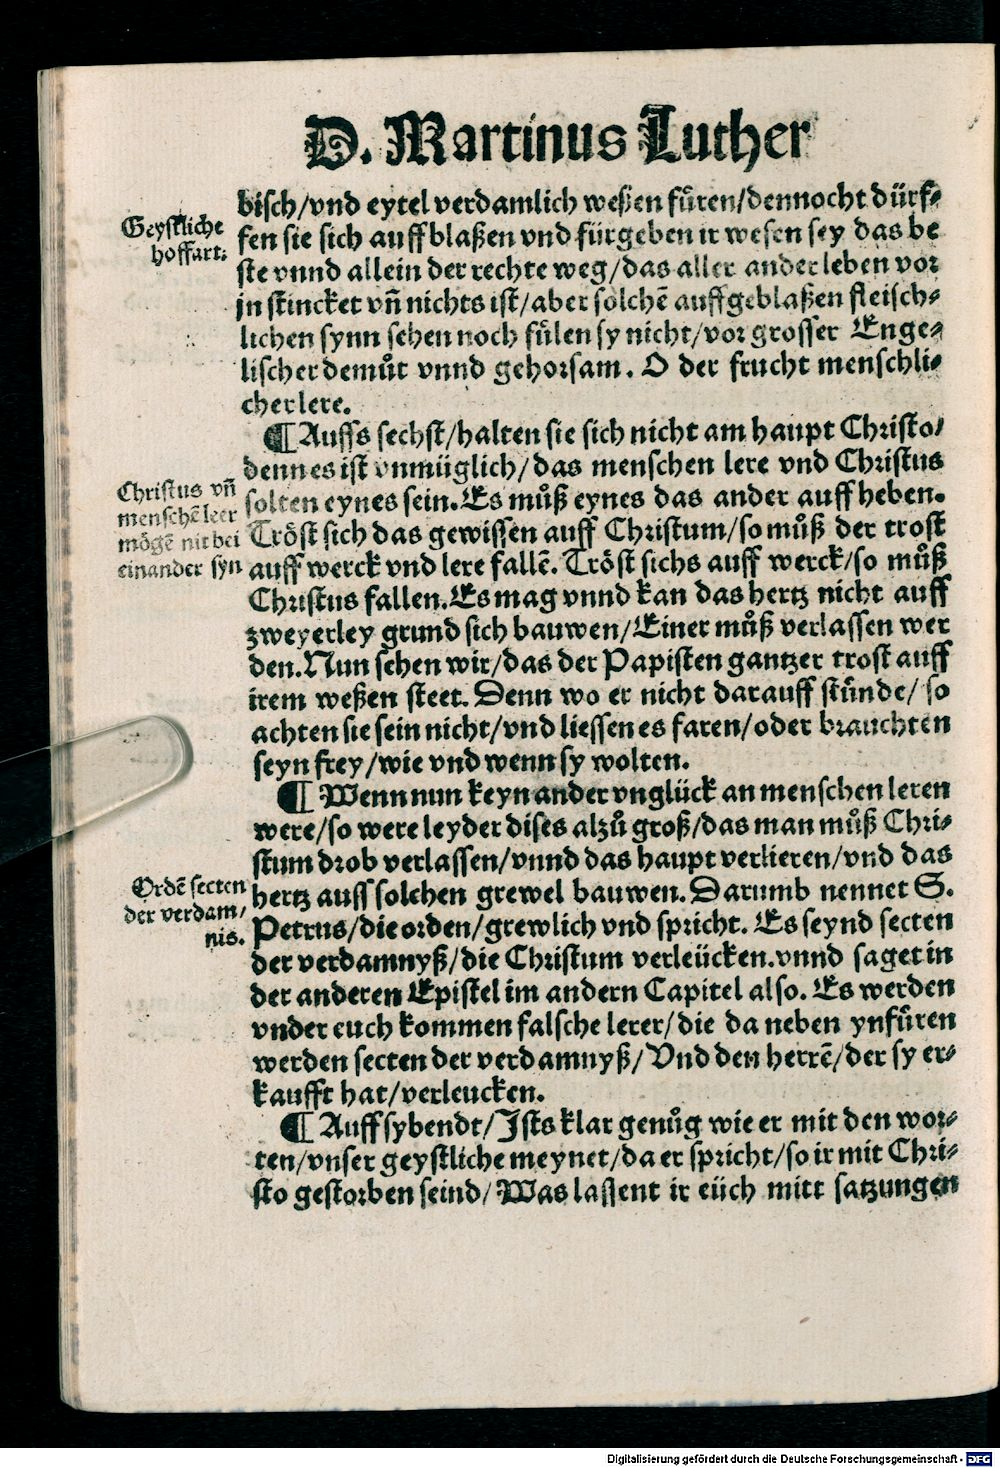 D. Martinus Luther
bisch/vnd eytel verdamlich weßen fůren/dennocht dürf-
fen sie sich auff blaßen vnd fürgeben ir wesen sey das be
ste vnnd allein der rechte weg/das aller ander leben vor
jn stincket vñ nichts ist/aber solchē auffgeblaßen fleisch-
lichen synn sehen noch fůlen sy nicht/vor grosser Enge-
lischer demůt vnnd gehorsam. O der frucht menschli-
cher lere.
Geystliche
hoffart:
¶ Auffs sechst/halten sie sich nicht am haupt Christo/
denn es ist vnmüglich/das menschen lere vnd Christus
solten eynes sein. Es můß eynes das ander auff heben.
Tröst sich das gewissen auff Christum/so můß der trost
auff werck vnd lere fallē. Tröst sichs auff werck/so můß
Christus fallen. Es mag vnnd kan das hertz nicht auff
zweyerley grund sich bauwen/Einer můß verlassen wer
den. Nun sehen wir/das der Papisten gantzer trost auff
irem weßen steet. Denn wo er nicht darauff stůnde/so
achten sie sein nicht/vnd liessen es faren/oder brauchten
seyn frey/wie vnd wenn sy wolten.
Christus vñ
menschē leer
mögē nit bei
einander syn
¶ Wenn nun keyn ander vnglück an menschen leren
were/so were leyder dises alzů groß/das man můß Chri-
stum drob verlassen/vnnd das haupt verlieren/vnd das
hertz auff solchen grewel bauwen. Darumb nennet S.
Petrus/die orden/grewlich vnd spricht. Es seynd secten
der verdamnyß/die Christum verleücken. vnnd saget in
der anderen Epistel im andern Capitel also. Es werden
vnder euch kommen falsche lerer/die da neben ynfůren
werden secten der verdamnyß/Vnd den herrē/der sy er-
kaufft hat/verleucken.
Ordē secten
der verdam/
nis.
¶ Auff sybendt/Ists klar genůg wie er mit den wor-
ten/vnser geystliche meynet/da er spricht/so ir mit Chri-
sto gestorben seind/Was lassent ir eüch mitt satzungen
Digitalisierung gefördert durch die Deutsche Forschungsgemeinschaft - DFG